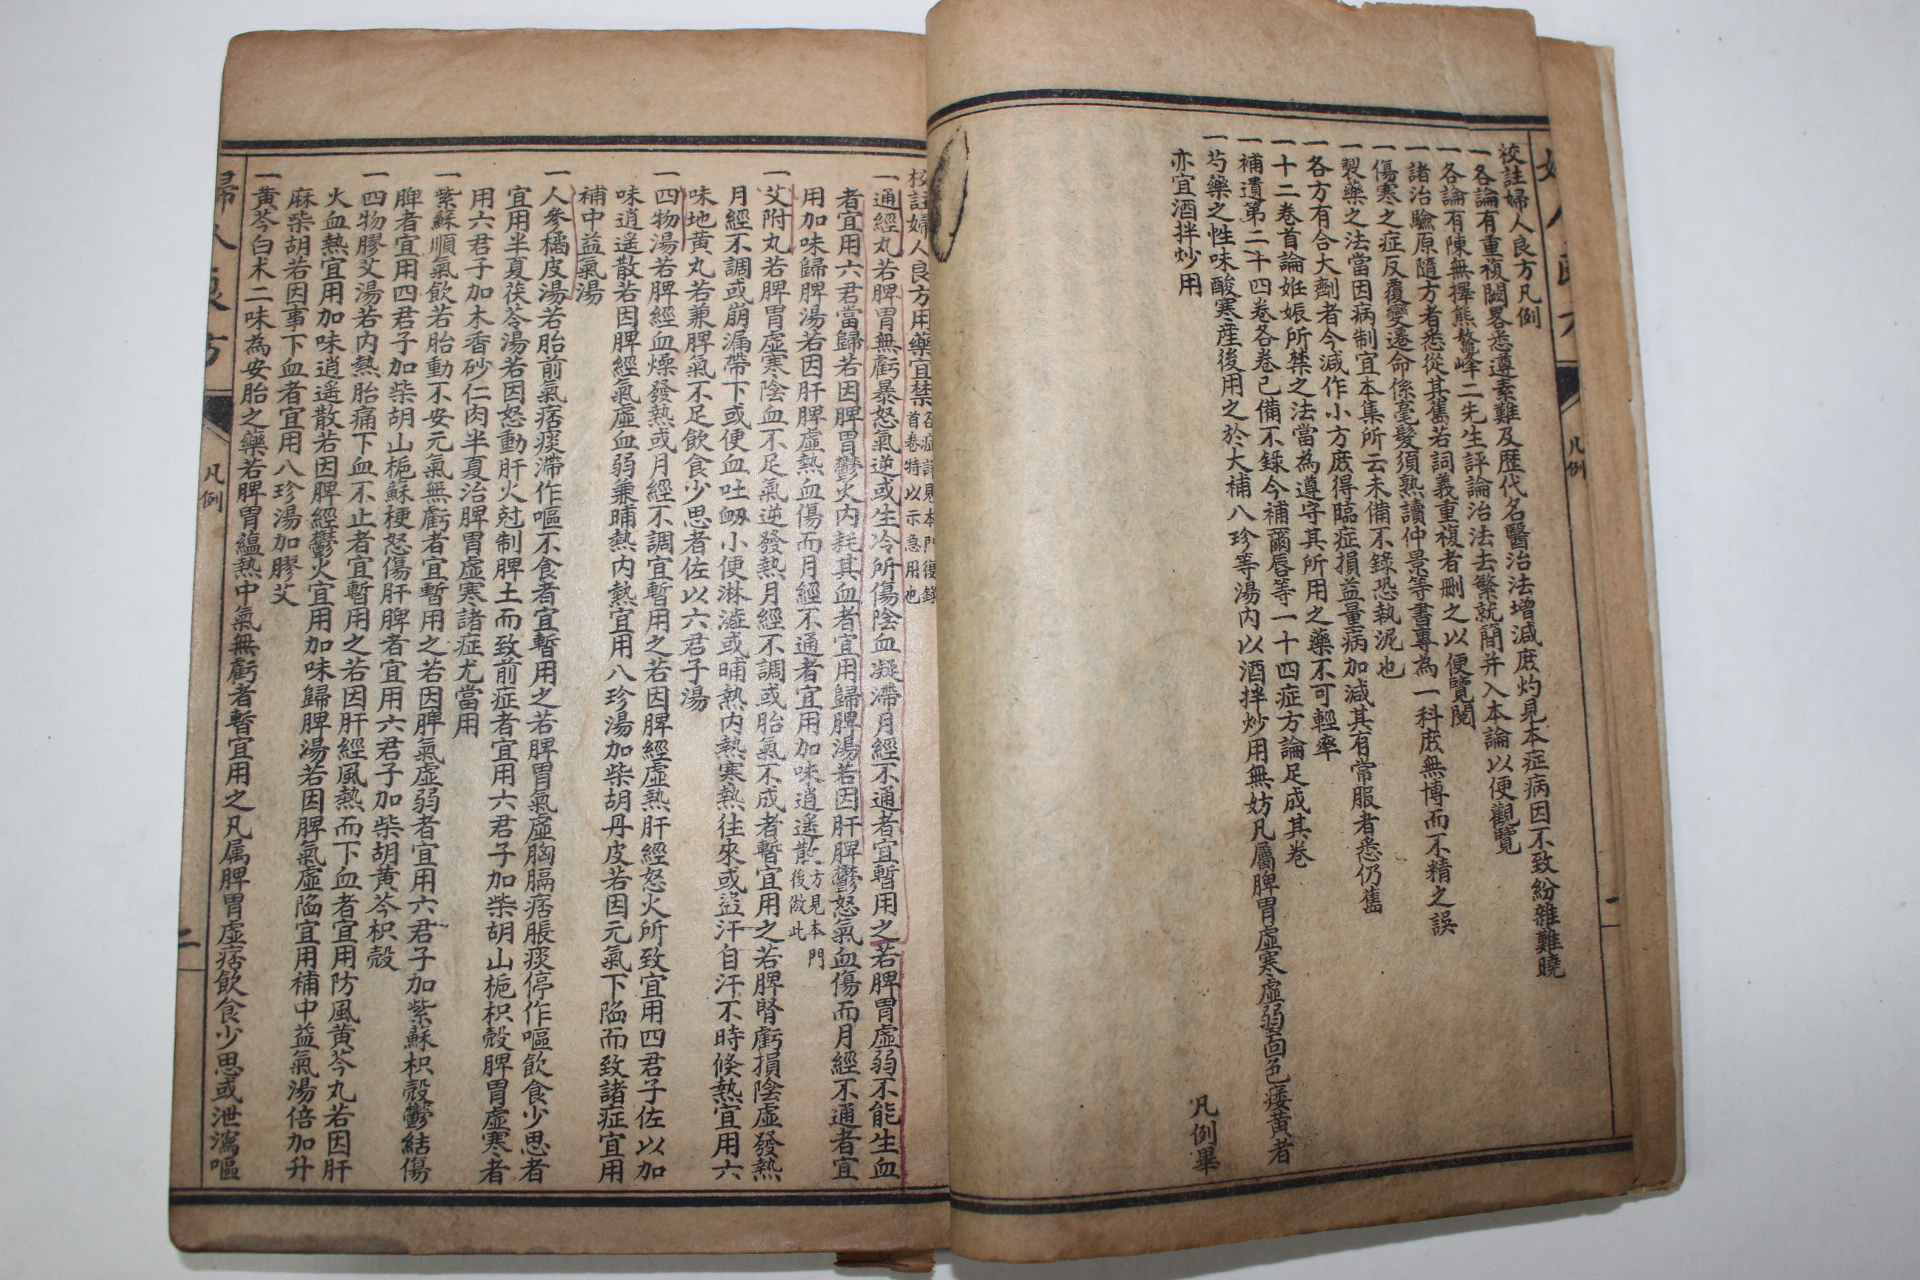 校註婦人良方凡例
一各論有重複闕畧悉遵素難及歷代名醫治法增減庶灼見本症病因不致紛雜難曉
一各論有陳無擇熊鰲峰二先生評論治法去繁就簡并入本論以便觀覽
一諸治驗原隨方者悉從其舊若詞義重複者刪之以便覽閱
一傷寒之症反覆變遷命係毫髮須熟讀仲景等書專為一科庶無博而不精之誤
一製藥之法當因病制宜本集所云未備不錄恐執泥也
一各方有合大劑者今減作小方庶得臨症損益量病加減其有常服者悉仍舊
一十二卷首論姙娠所禁之法當為遵守其所用之藥不可輕率
一補遺第二十四卷各卷已備不錄今補薾唇等一十四症方論足成其卷
一芍藥之性味酸寒產後用之於大補八珍等湯內以酒拌炒用無妨凡屬脾胃虛寒虛弱面色痿黃者
亦宜酒拌炒用
凡例畢
凡例
一
校註婦人良方用藥宜禁
首卷特以示急用也
一通經丸若脾胃無虧暴怒氣逆或生冷所傷陰血凝滯月經不通者宜暫用之若脾胃虛弱不能生血
者宜用六君當歸若因脾胃鬱火內耗其血者宜用歸脾湯若因肝脾鬱怒氣血傷而月經不通者宜
用加味歸脾湯若因肝脾虛熱血傷而月經不通者宜用加味逍遙散方見本門後倣此
一艾附丸若脾胃虛寒陰血不足氣逆發熱月經不調或胎氣不成者暫宜用之若脾腎虧損陰虛發熱
月經不調或崩漏帶下或便血吐衂小便淋瀝或晡熱內熱寒熱往來或盜汗自汗不時倏熱宜用六
味地黃丸若兼脾氣不足飲食少思者佐以六君子湯
一四物湯若脾經血燥發熱或月經不調宜暫用之若因脾經虛熱肝經怒火所致宜用四君子佐以加
味逍遙散若因脾經氣虛血弱兼晡熱內熱宜用八珍湯加柴胡丹皮若因元氣下陷而致諸症宜用
補中益氣湯
一人參橘皮湯若胎前氣痞痰滯作嘔不食者宜暫用之若脾胃氣虛胸膈痞脹痰停作嘔飲食少思者
宜用半夏茯苓湯若因怒動肝火尅制脾土而致前症者宜用六君子加柴胡山梔枳殼脾胃虛寒者
用六君子加木香砂仁肉半夏治脾胃虛寒諸症尤當用
一紫蘇順氣飲若胎動不安元氣無虧者宜暫用之若因脾氣虛弱者宜用六君子加紫蘇枳殼鬱結傷
脾者宜用四君子加柴胡山梔蘇梗怒傷肝脾者宜用六君子加柴胡黃芩枳殼
一四物膠艾湯若內熱胎痛下血不止者宜暫用之若因肝經風熱而下血者宜用防風黃芩丸若因肝
火血熱宜用加味逍遙散若因脾經鬱火宜用加味歸脾湯若因脾氣虛陷宜用補中益氣湯倍加升
麻柴胡若因事下血者宜用八珍湯加膠艾
一黃芩白朮二味為安胎之藥若脾胃蘊熱中氣無虧者暫宜用之凡屬脾胃虛痞飲食少思或泄瀉嘔
婦人良方
凡例
二